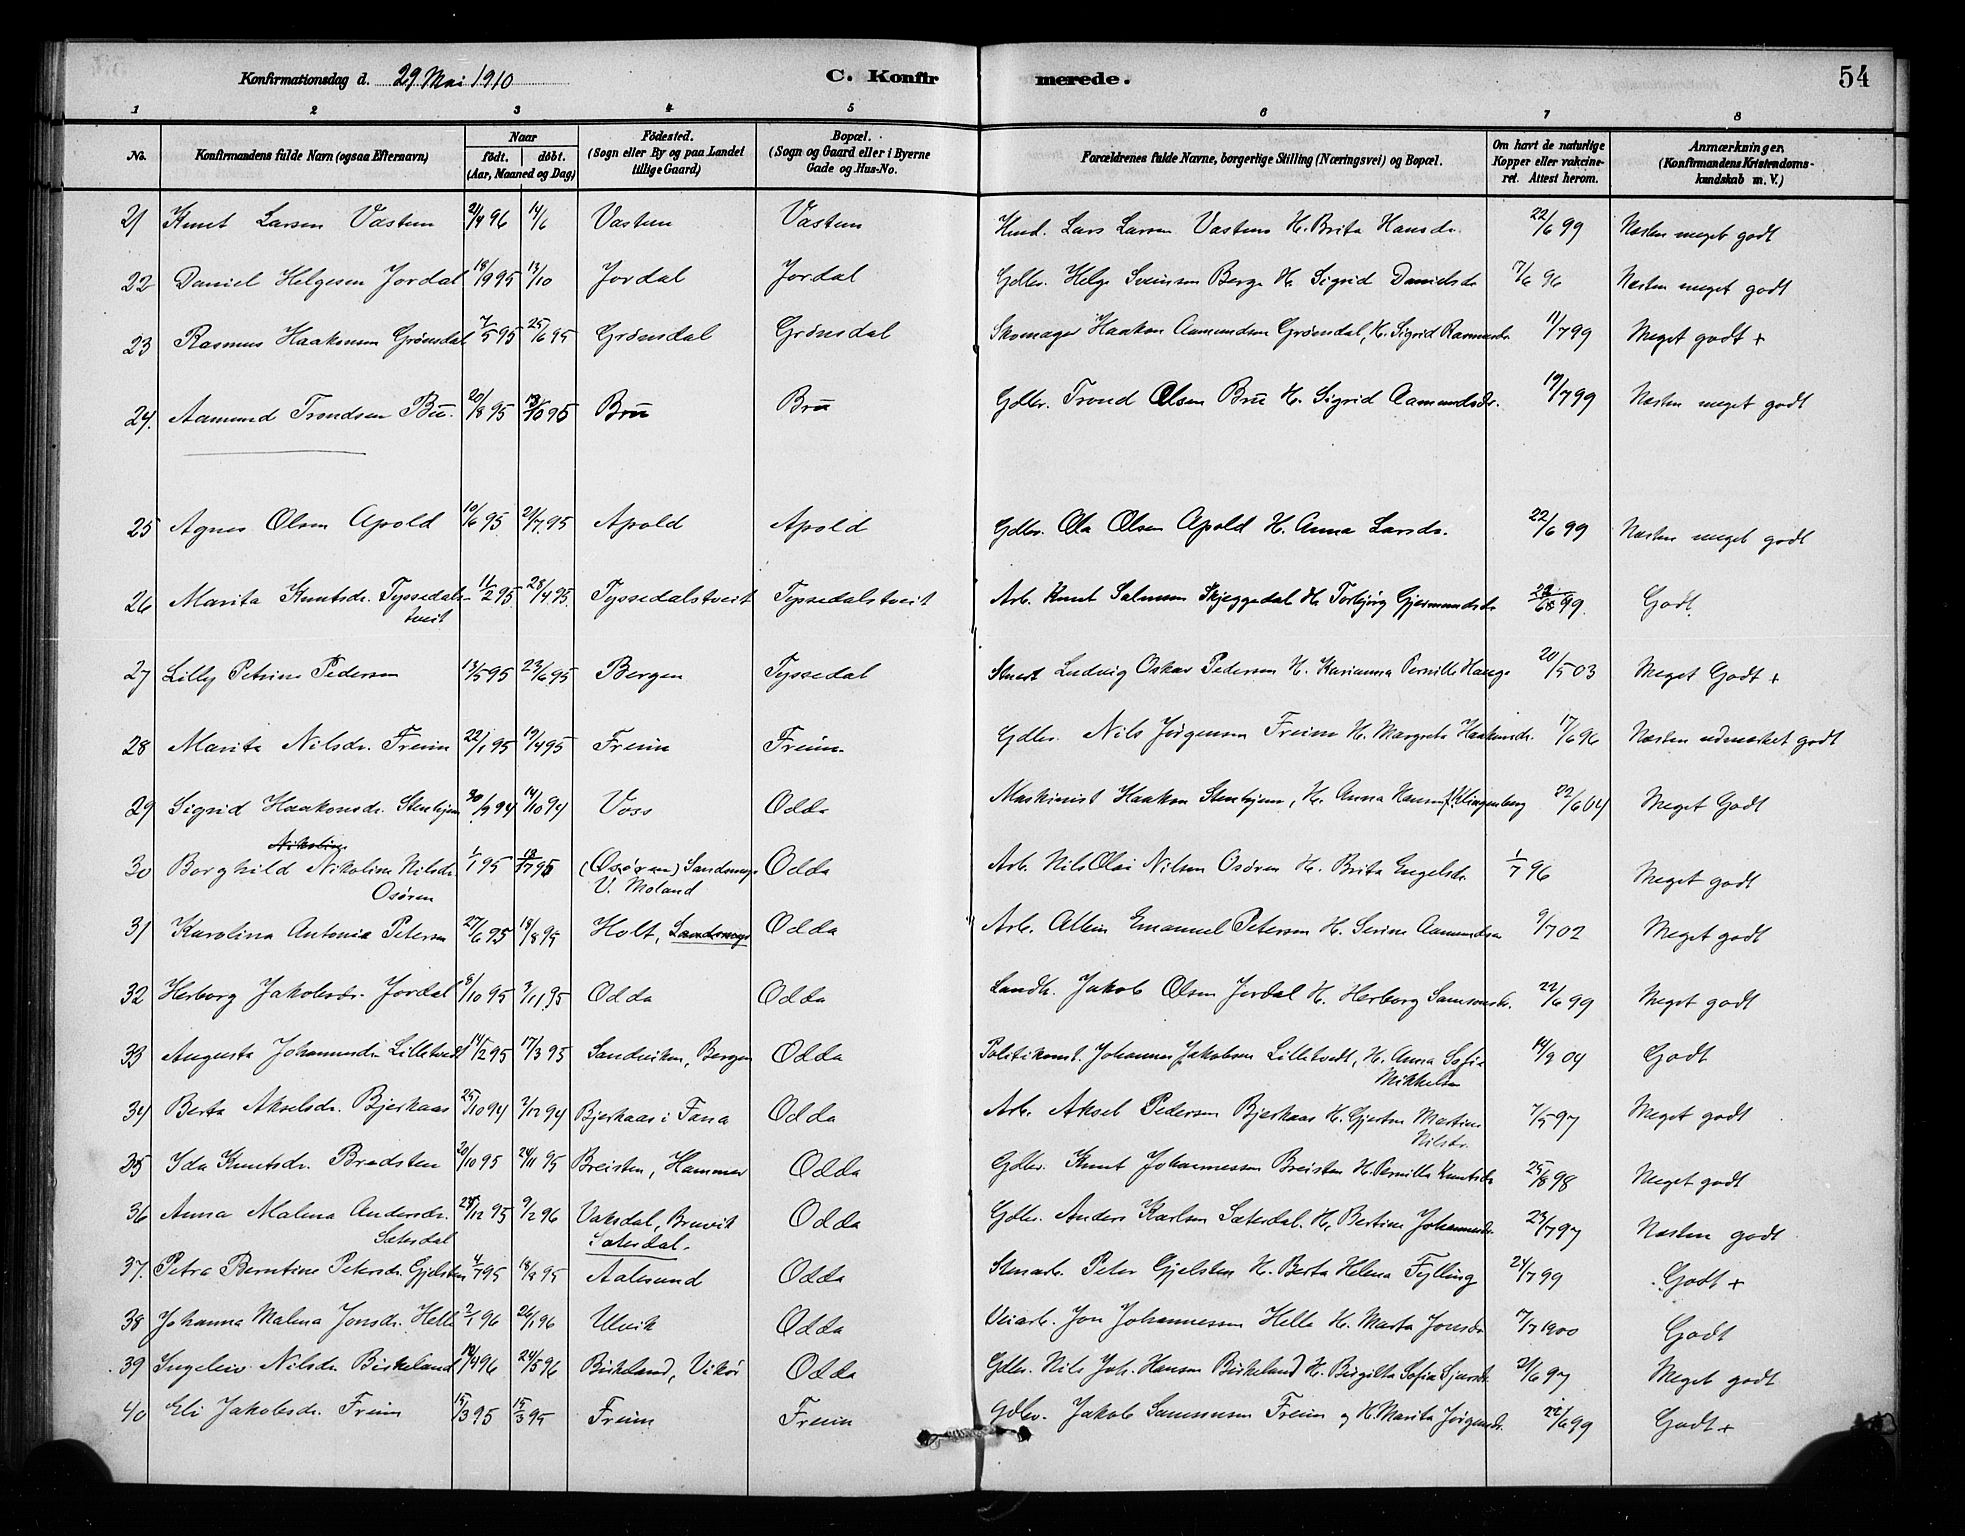 Konfirmationsdag d. 29 Mai 1910 C. Konfirmerede. 54
1 2 3 4 5 6 7 8
No. Konfirmandens fulde Navn (ogsaa Efternavn) Naar født. døbt. (Aar, Maaned og Dag) Fødested. (Sogn eller By og paa Landet tillige Gaard) Bopæl. (Sogn og Gaard eller i Byerne Gade og Hus-No. Forældrenes fulde Navne, borgerlige Stilling (Næringsvei) og Bopæl. Om havt de naturlige Kopper eller vakcineret. Attest herom. Anmærkninger. (Konfirmandens Kristendomskundskab m. V.)
21 Knut Larsen Vastun 21/4 96 14/6 Vastun Vastun Lars Larsen Vastun H. Brita Hansdr. 22/6 99 Næsten meget godt
22 Daniel Helgesen Jordal 18/9 95 13/10 Jordal Jordal Gdbr. Helge Svensen Berge H. Sigrid Danielsdr 7/6 96 Næsten meget godt
23 Rasmus Haakonsen Grønsdal 7/5 95 25/6 95 Grønsdal Grønsdal Skomager Haakon Aamundsen Grønsdal, H. Sigrid Rasmusdr 11/7 99 Meget godt +
24. Aamund Trondsen Bu. 20/8 95 13/10 95 Bru Bru Gdbr. Trond Olsen Bru H. Sigrid Aamundsdr. 19/7 99 Næsten meget godt
25 Agnes Olsen Apold 10/6 95 21/7 95 Apold Apold Gdbr. Ola Olsen Apold H. Anna Larsdr. 22/6 99 Næsten meget godt
26 Marita Knutsdr. Tyssedals-
tveit 11/2 95 28/4 95 Tyssedalstveit Tyssedalstveit Arb. Knut Salmsen Skjeggedal H. Torbjørg Gjermundsdr 99 Godt
27 Lilly Petrine Pedersen 13/5 95 23/6 95 Bergen Tyssedal Ludvig Oskar Pedersen H. Karianna Pernille Hauge 20/5 03 Meget Godt +
28 Marita Nilsdr. Freim 22/1 95 19/4 95 Freim Freim Gdbr. Nils Jørgensen Freim H. Margreta Haakonsdr. 17/6 96 Næsten udmærket godt
29 Sigrid Haakonsdr. Stenhjem 30/9 94 14/10 94 Voss Odda Maskinist Haakon Stenhjem, H. Anna Klingenberg 22/6 04 Meget Godt
Nikoline
30 Borghild Nikoline Nilsdr.
Osøren 1/1 95 95 (Osøren) Sandsnes
V. Moland Odda Arb. Nils Olai Nilsen Osøren H. Brita Engelsdr. 1/7 96 Meget godt
31 Karolina Antonia Petersen 27/6 95 18/8 95 Holt, Odda Arb. Albin Emanuel Petersen H. Serine Aamundsen 9/7 02 Meget godt
32 Herborg Jakobsdr. Jordal 8/10 95 3/11 95 Odda Odda Landh. Jakob Olsen Jordal H. Herborg Samsonsdr. 22/6 99 Meget godt
33 Augusta Johannesdr. Lilletvedt 14/2 95 17/3 95 Sandviken, Bergen Odda Politikonst. Johannes Jakobsen Lilletvedt, H. Anna Sofia
Mikkelsen 14/9 04 Godt
34 Berta Akselsdr. Bjerkaas 25/10 94 2/12 94 Bjerkaas i Fana Odda Arb. Aksel Pedersen Bjerkaas H. Gjertine Martine
Nilsdr. 7/5 97 Meget godt
35 Ida Knutsdr. Bredsten 20/10 95 24/11 95 Breisten, Hammer Odda Gdbr. Knut Johannessen Breisten H. Pernille Knutsdr 25/8 98 Meget godt
36 Anna Malena Andersdr.
Sætersdal 28/12 95 9/2 96 Vaksdal, Bruvik
Sætersdal. Odda Gdbr. Anders Karlsen Sætersdal. H. Bertine Johannesdr. 23/7 97 Næsten godt
37. Petra Berntine Petersdr. Gjelsten 4/7 95 18/8 95 Aalesund Odda Stenarb. Peter Gjelsten H. Berta Helena Fylling 24/7 99 Godt +
38 Johanna Malena Jonsdr. Helle 2/1 96 26/1 96 Ulvik Odda Veiarb. Jon Johannessen Helle H. Marta Jonsdr 17/7 1900 Godt
39 Ingeleiv Nilsdr. Birkeland 14/4 96 24/5 96 Birkeland, Vikør Odda Gdbr. Nils Joh. Hansen Birkeland H. Birgitta Sofia Sjursdr. 21/6 97 Meget godt
40 Eli Jakobsdr. Freim 15/3 95 15/3 95 Freim Freim Gdbr. Jakob Samsonsen Freim og H. Marita Jørgensdr. 22/6 99 Godt +